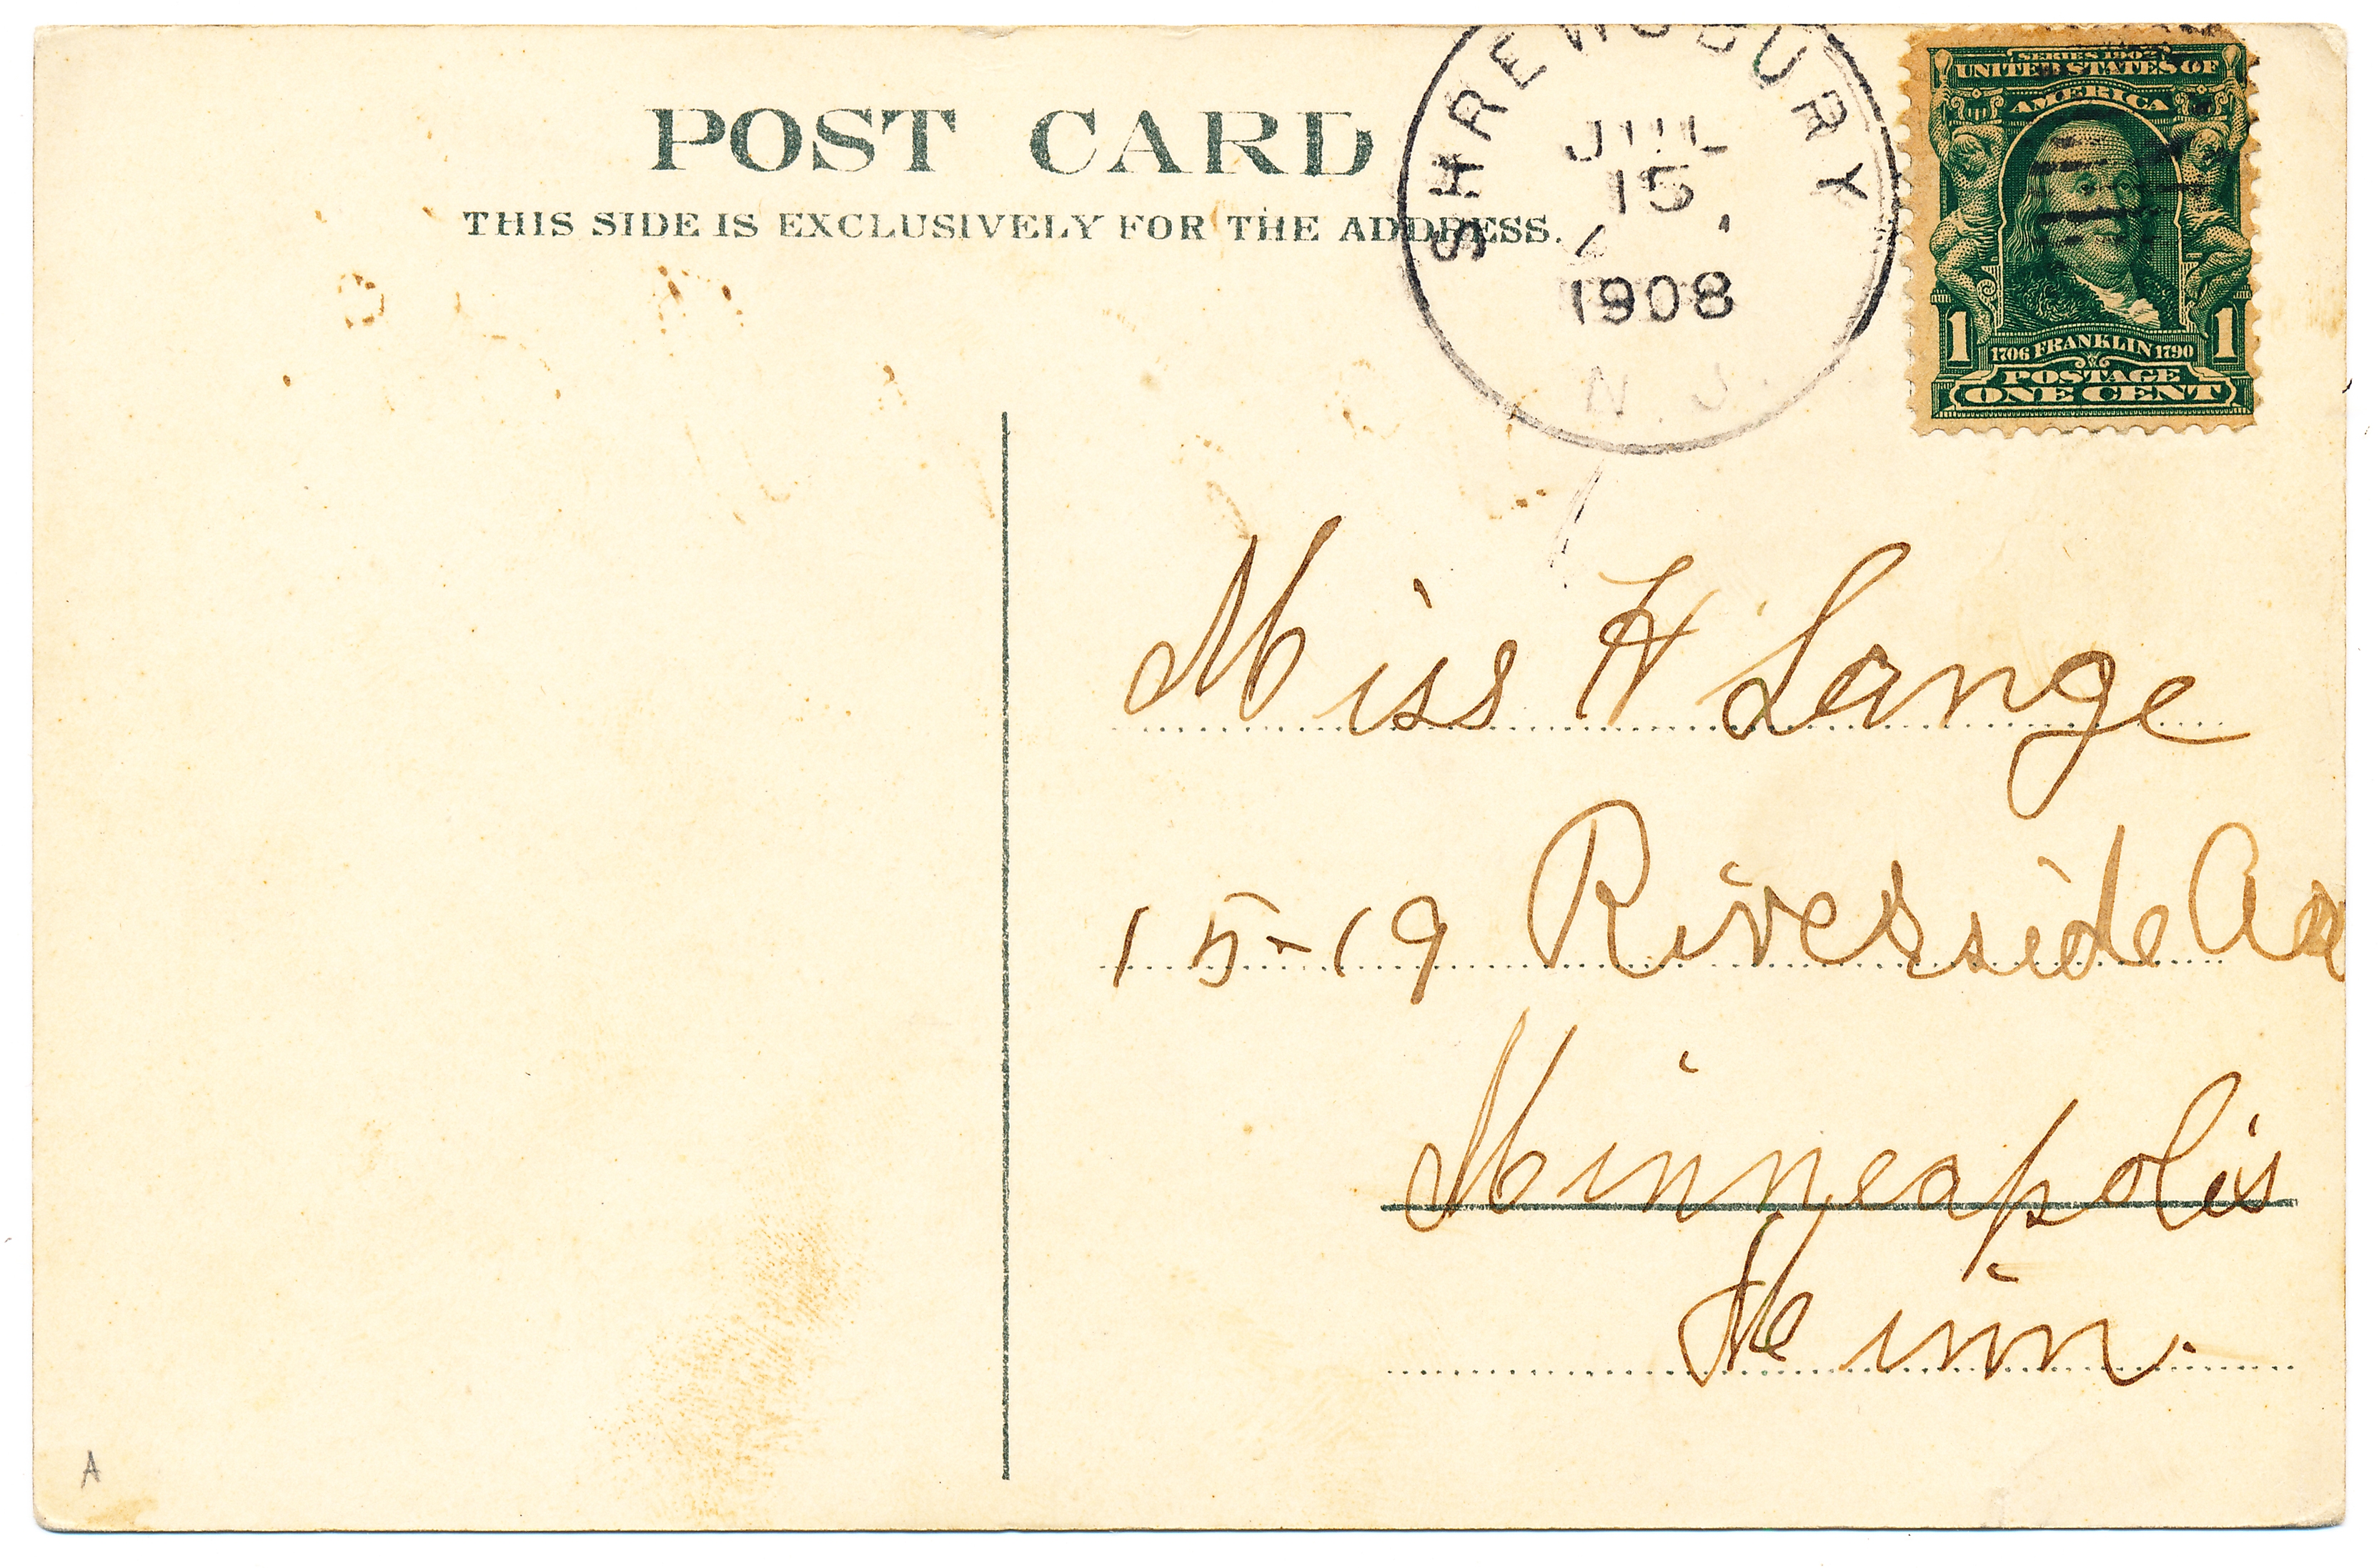 POST CARD
THIS SIDE IS EXCLUSIVELY FOR THE ADDRESS.
SHREWSBURY
JUL
15
1908
N. J.
SERIES 1902
UNITED STATES OF
AMERICA
1 1706 FRANKLIN 1790 1
POSTAGE
ONE CENT
Miss H Lange
15-19 Riverside
Minneapolis
Minn.
A